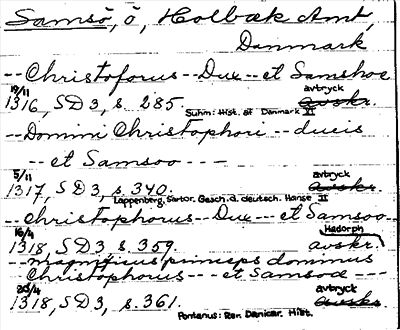 Samsö, ö, Holbæk Amt,
Danmark
-- Christoforus -- Dux -- et Samshoe
19/11 avtryck
1316, SD3, s. 285. Suhm: Hist. af Danmark XI avskr.
-- Domini Christophori -- ducis
-- et Samsoo ---
5/11 avtryck
1317, SD3, s. 340. Lappenberg, Sartor. Gesch. d. deutsch. Hanse II avskr.
-- Christophorus -- Dux -- et Samsoo --
16/4 Hadorph
1318, SD3 s. 359. avskr.
-- Magnificus princeps dominus
Christophorus -- et Samsod ---
20/4 avtryck
1318, SD3, s. 361. Pontanus: Rer. Danicar. Hist. avskr.